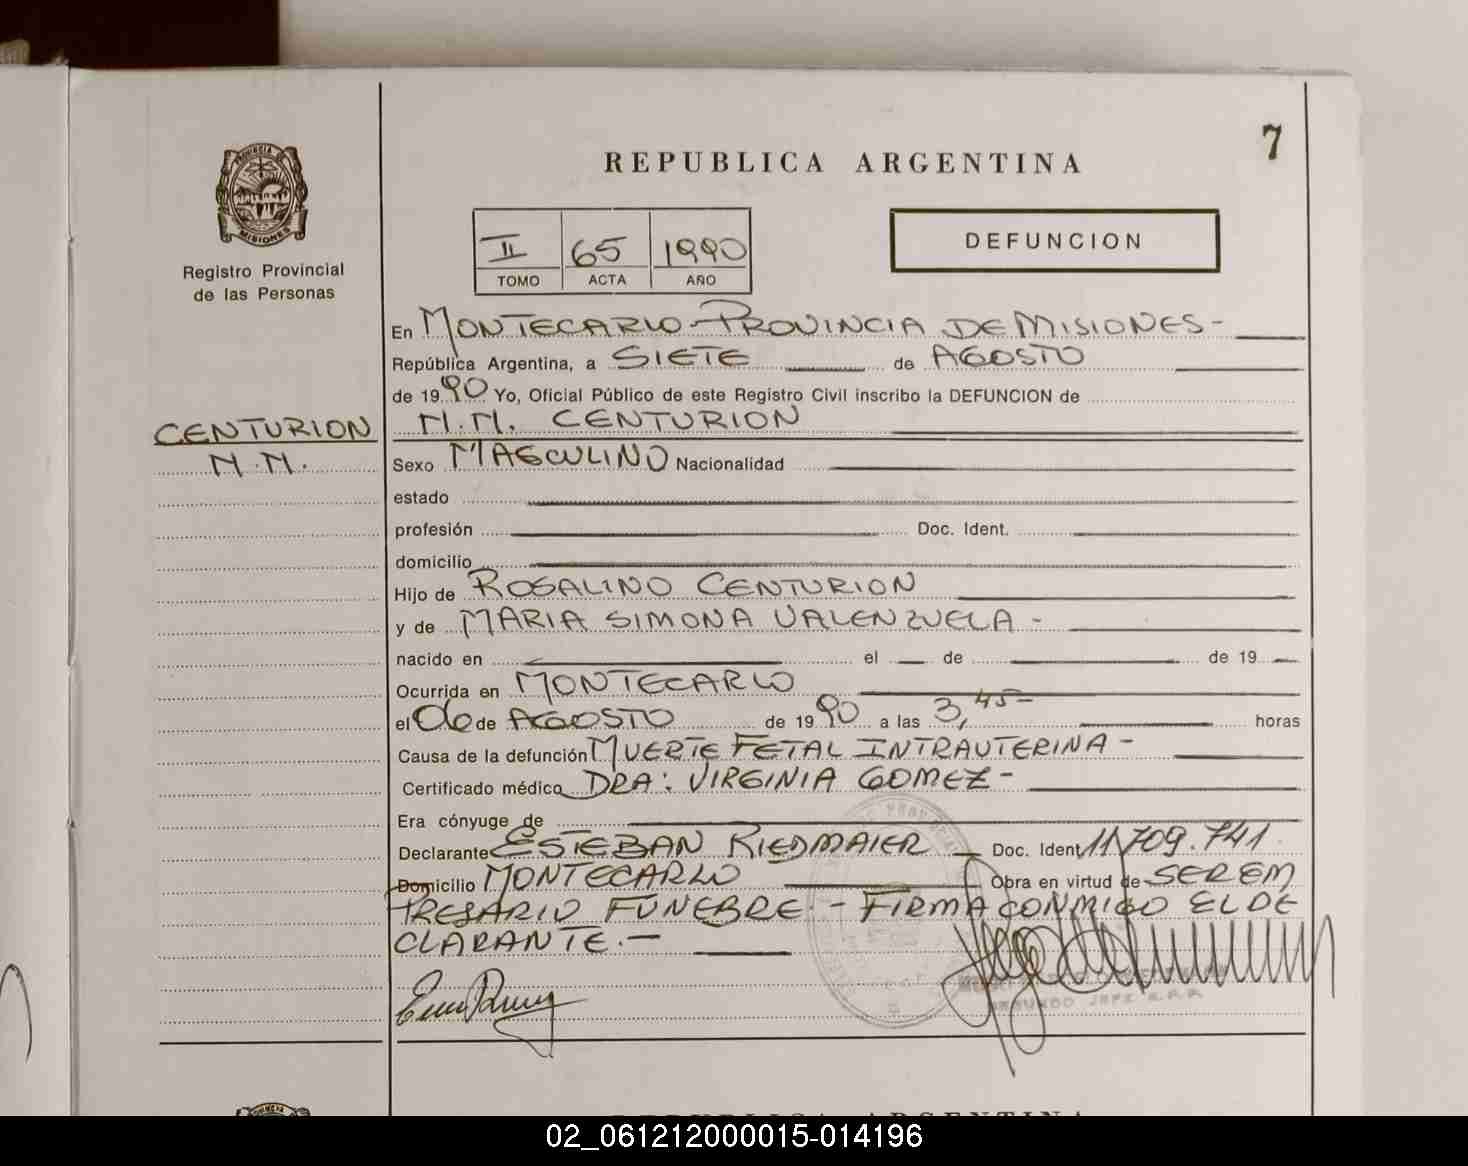 7
REPUBLICA ARGENTINA
PROVINCIA DE
MISIONES
Registro Provincial
de las Personas
II 65 1990
TOMO ACTA AÑO
DEFUNCION
En MONTECARLO-PROVINCIA DE MISIONES-
República Argentina, a SIETE de AGOSTO
de 1990 Yo, Oficial Público de este Registro Civil inscribo la DEFUNCION de
CENTURION
N.N. CENTURION
N.N.
Sexo MASCULINO Nacionalidad
estado
profesión Doc. Ident.
domicilio
Hijo de ROSALINO CENTURION
y de MARIA SIMONA VALENZUELA -
nacido en el de de 19
Ocurrida en MONTECARLO
el 06 de AGOSTO de 1990 a las 3,45- horas
Causa de la defunción MUERTE FETAL INTRAUTERINA -
Certificado médico DRA: VIRGINIA GOMEZ -
Era cónyuge de
Declarante ESTEBAN RIEDMAIER Doc. Ident. 11.709.741.
Domicilio MONTECARLO Obra en virtud de SER EM
PRESARIO FUNEBRE.- FIRMA CONMIGO EL DE
CLARANTE.-
SEGUNDO JEFE
REPUBLICA ARGENTINA
02_061212000015-014196